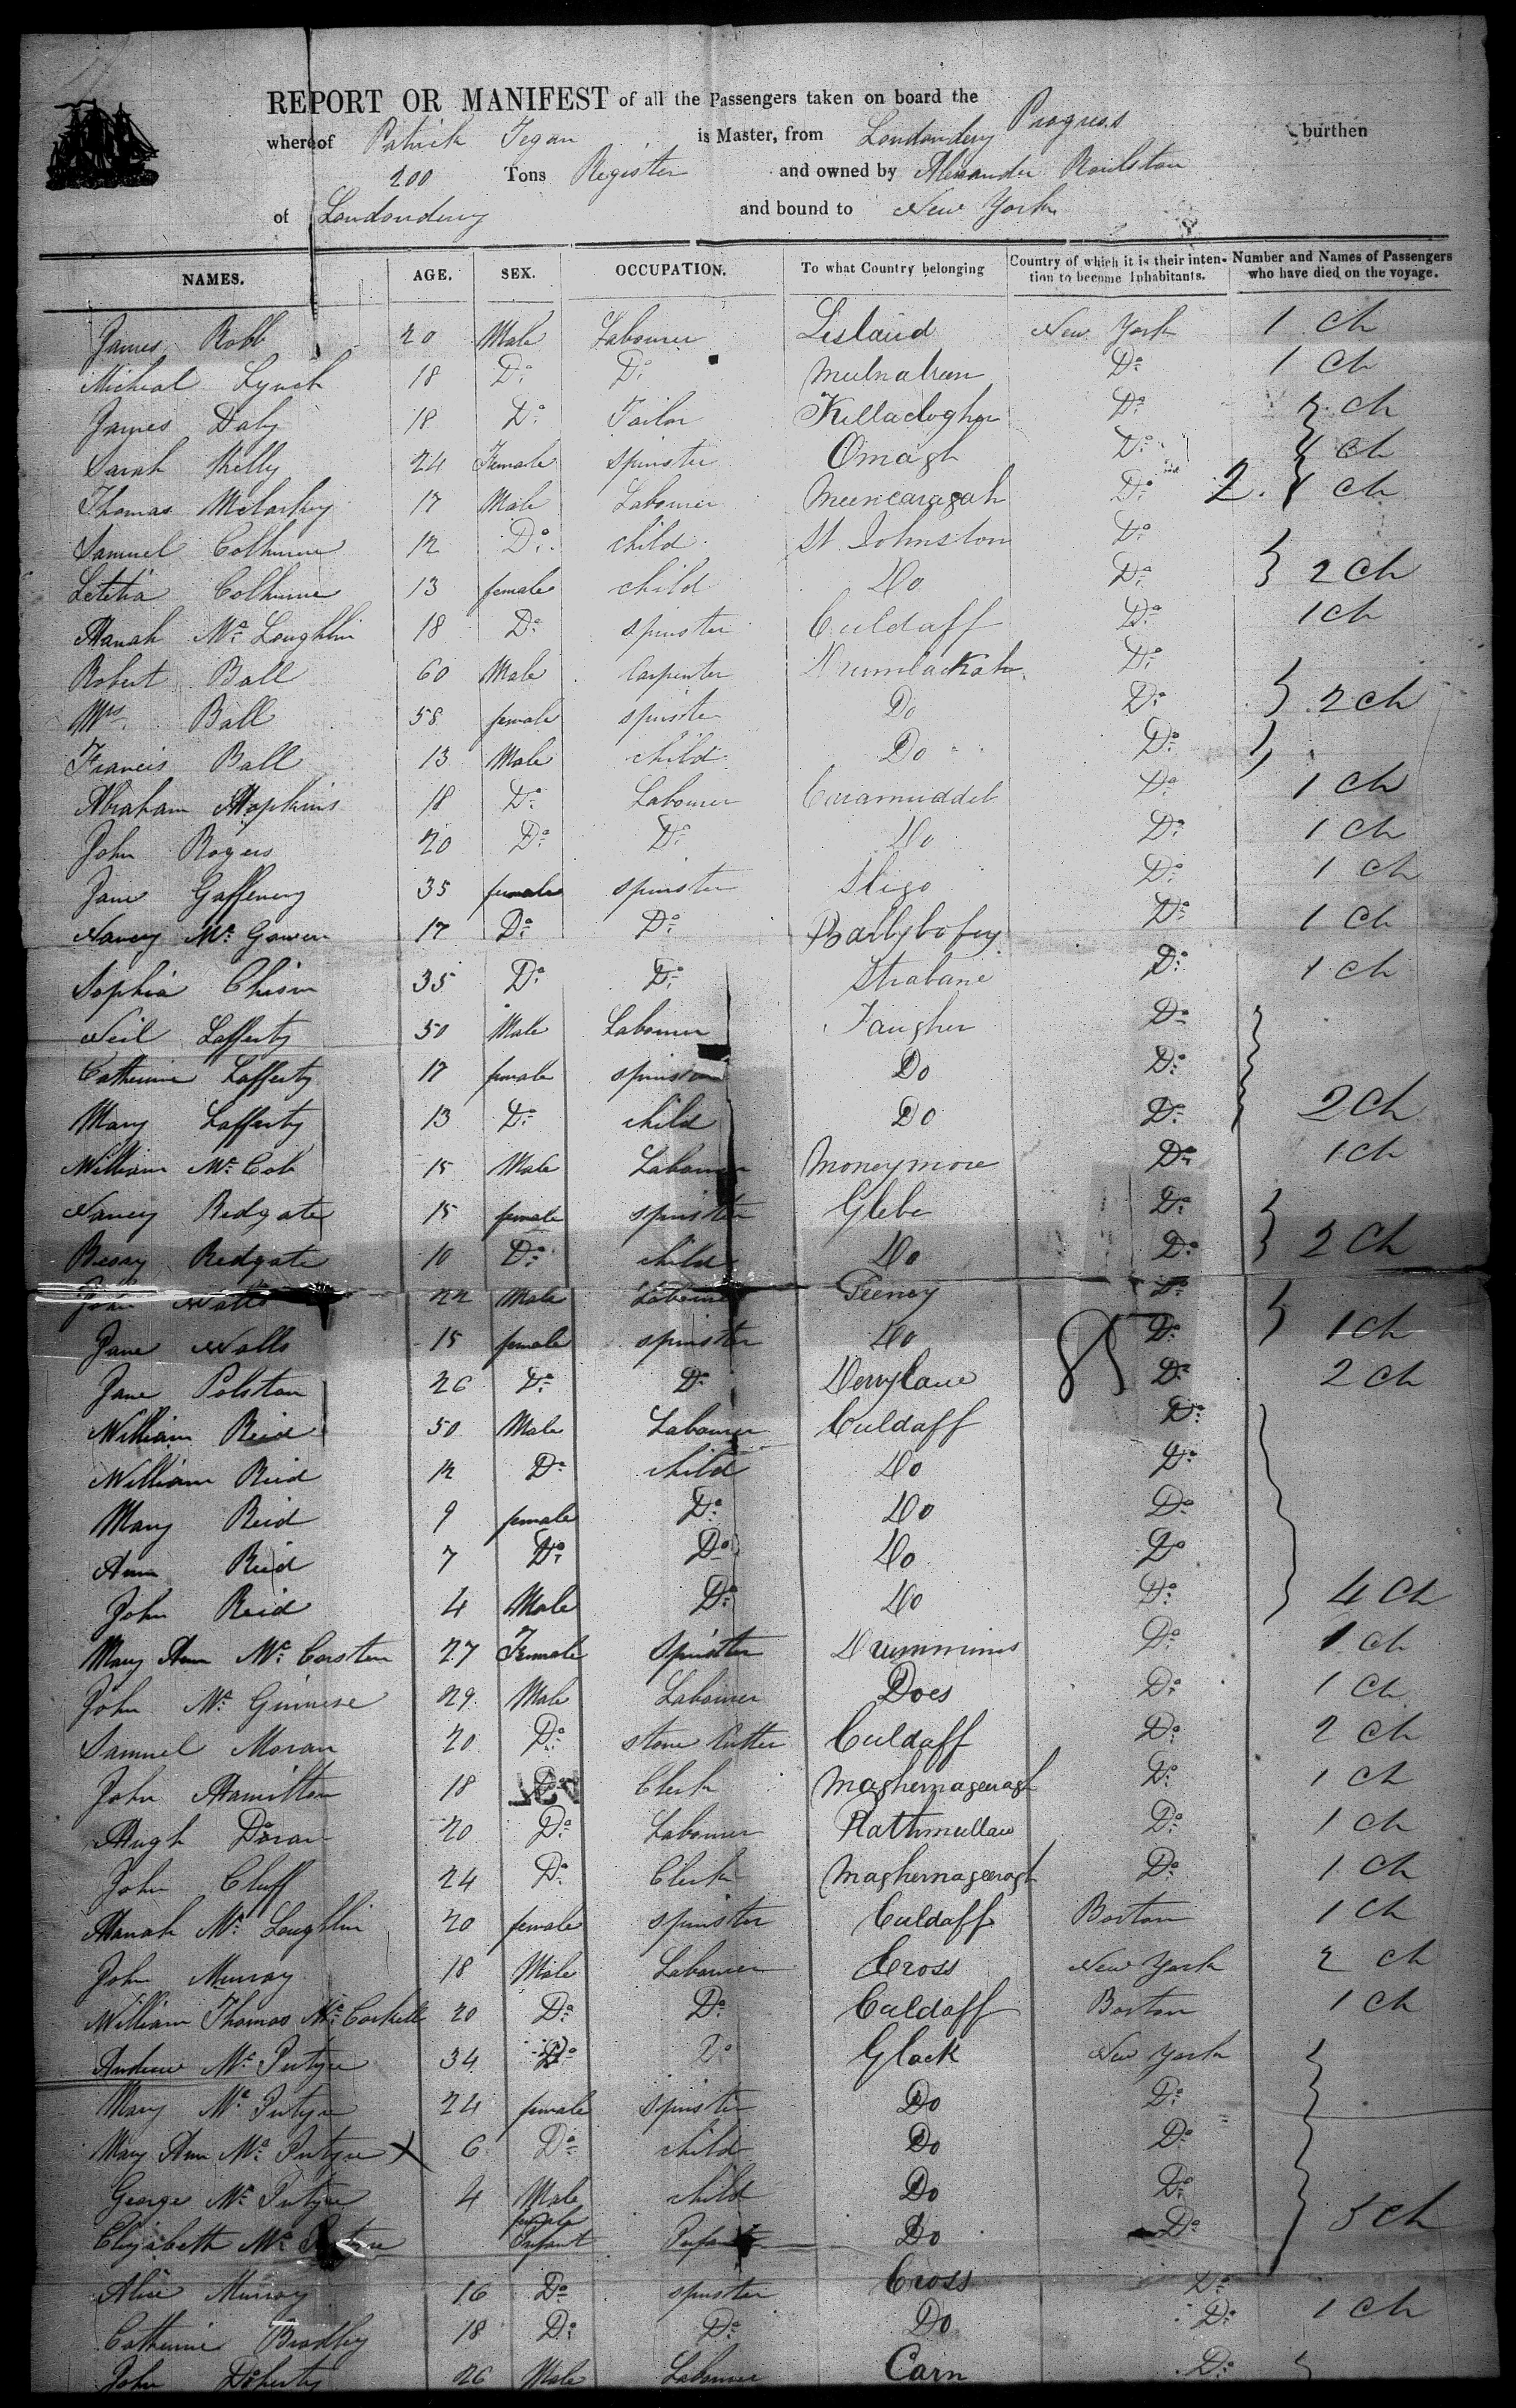 REPORT OR MANIFEST of all the Passengers taken on board the Progress burthen
whereof Patrick Fegan is Master, from Londonderry
200 Tons Register and owned by Alexander Roulston
of Londonderry and bound to New York
NAMES. AGE. SEX. OCCUPATION. To what Country belonging Country of which it is their intention to become Inhabitants. Number and Names of Passengers who have died on the voyage.
James Robb 20 Male Labourer New York 1 Ch
Micheal Lynch 18 Do Do Do 1 Ch
James Daly 18 Do Tailor Killaclogher Do Ch
Sarah Kelly 24 Female Spinster Omagh Do Ch
Thomas 17 Male Labourer Do 2. Ch
Samuel Colhoune 12 Do child St Johnston Do
Letitia Colhoune 13 female child Do Do 2 Ch
Hanah Mc Loughlin 18 Do spinster Culdaff Do 1 Ch
Robert Ball 60 Male Carpenter Do
Mrs Ball 58 female spinster Do Do 2 Ch
Francis Ball 13 Male child Do Do
Abraham Hopkins 18 Do Labourer Do 1 Ch
John Rogers 20 Do Do Do Do 1 Ch
Jane Gaffeney 35 female spinster Sligo Do 1 Ch
Nancy Mc Gowen 17 Do Do Ballybofey Do 1 Ch
Sophia Chism 35 Do Do Strabane Do 1 Ch
Neil Lafferty 50 Male Labourer Faugher Do
Catherine Lafferty 17 female spinster Do Do
Mary Lafferty 13 Do child Do Do 2 Ch
William Mc Cob 15 Male Labourer Moneymore Do 1 Ch
Nancy Redgate 15 female spinster Glebe Do
Bessy Redgate 10 Do child Do Do 2 Ch
John Watts 22 Male Labourer Feeney Do
Jane Walls 15 female spinster Do 85 Do 1 Ch
Jane Polston 26 Do Do Derrylane Do 2 Ch
William Reid 50 Male Labourer Culdaff Do
William Reid 12 Do child Do Do
Mary Reid 9 female Do Do Do
Ann Reid 7 Do Do Do Do
John Reid 4 Male Do Do Do 4 Ch
Mary Ann Mc Corsten 27 Female Spinster Drummins Do 1 Ch
John Mc Guinese 29 Male Labourer Does Do 1 Ch
Samuel Moran 20 Do stone Cutter Culdaff Do 2 Ch
John Hamilton 18 Do Clerk Maghernageeragh Do 1 Ch
Hugh Doran 20 Do Labourer Rathmullan Do 1 Ch
John Cluff 24 Do Clerk Maghernageeragh Do 1 Ch
Hanah Mc Loughlin 20 female spinster Culdaff Boston 1 Ch
John Murray 18 Male Labourer Cross New York 2 Ch
William Thomas Mc Corkell 20 Do Do Culdaff Boston 1 Ch
Andrew Mc Intyre 34 Do Do Glack New York
Mary Mc Intyre 24 female spinster Do Do
Mary Ann Mc Intyre X 6 Do child Do Do
George Mc Intyre 4 Male child Do Do
Elizabeth Mc Intyre female Infant Infant Do Do 5 Ch
Alice Murray 16 Do spinster Cross Do
Catherine Bradley 18 Do Do Do Do 1 Ch
John Doherty 26 Male Labourer Carn Do